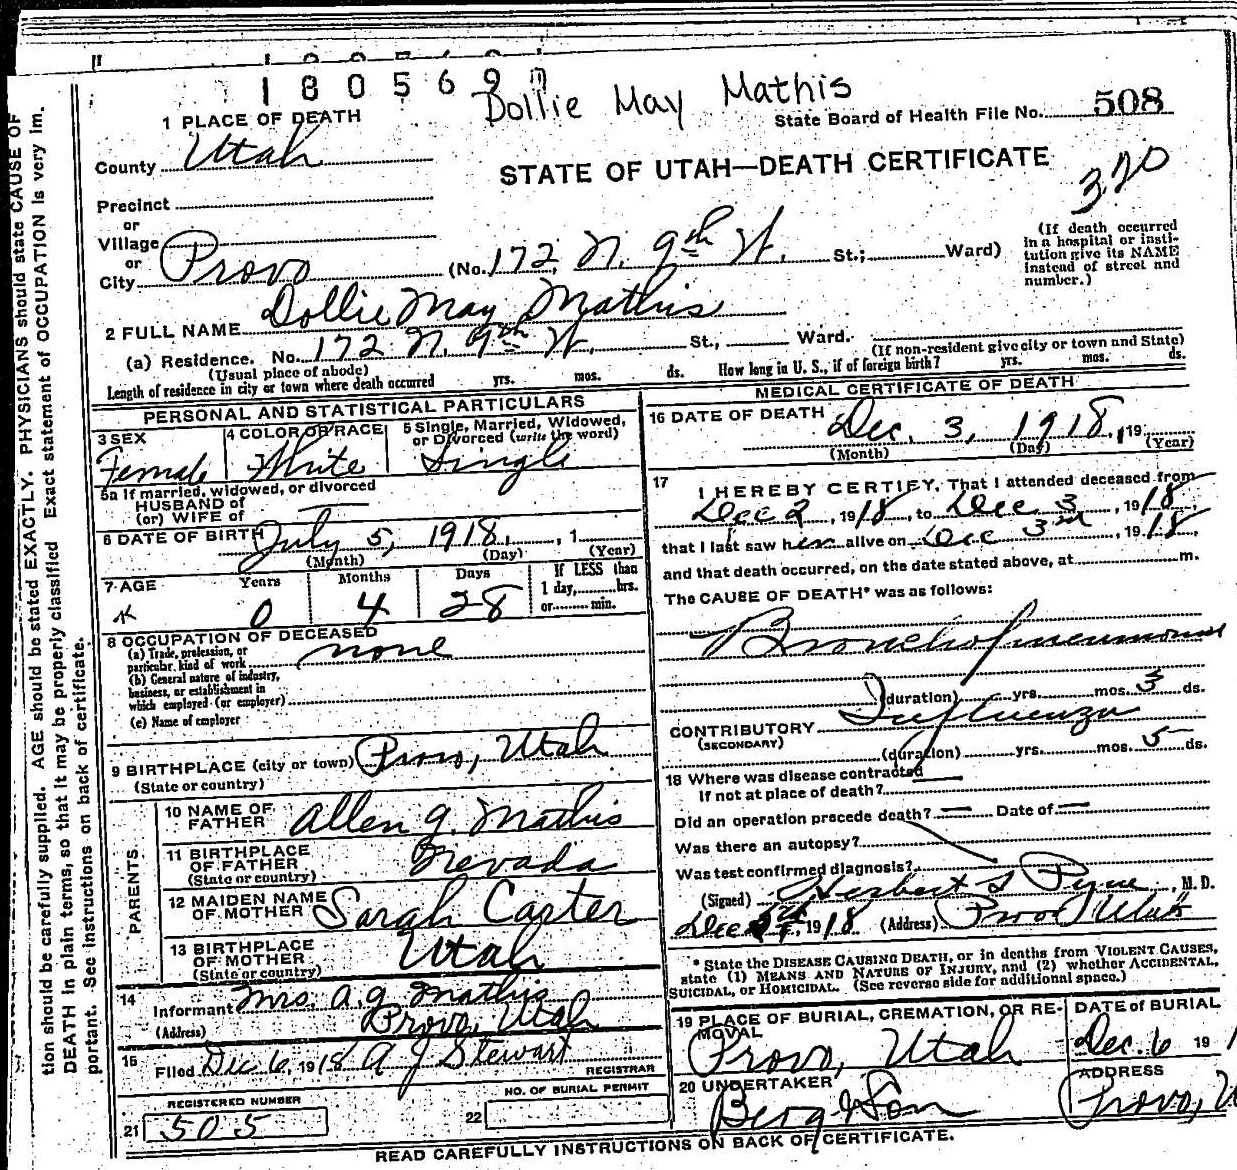 180569
Dollie May Mathis
State Board of Health File No. 508
1 PLACE OF DEATH
County Utah
STATE OF UTAH—DEATH CERTIFICATE
320
Precinct
or
Village
or
City Provo (No. 172, N. 9th W. St.; Ward)
(If death occurred in a hospital or insti-
tution give its NAME
instead of street and
number.)
2 FULL NAME Dollie May Mathis
(a) Residence. No. 172 N. 9th W. St., Ward.
(Usual place of abode)
(If non-resident give city or town and State)
Length of residence in city or town where death occurred yrs. mos. ds. How long in U. S., if of foreign birth? yrs. mos. ds.
PERSONAL AND STATISTICAL PARTICULARS
3 SEX
Female
4 COLOR OR RACE
White
5 Single, Married, Widowed,
or Divorced (write the word)
Single
5a If married, widowed, or divorced
HUSBAND of
(or) WIFE of
6 DATE OF BIRTH July 5, 1918, , 1
(Month) (Day) (Year)
7 AGE Years Months Days If LESS than
1 day, hrs.
or min.
0 4 28
8 OCCUPATION OF DECEASED
(a) Trade, profession, or
particular kind of work none
(b) General nature of industry,
business, or establishment in
which employed (or employer)
(c) Name of employer
9 BIRTHPLACE (city or town) Provo, Utah
(State or country)
PARENTS
10 NAME OF
FATHER Allen G. Mathis
11 BIRTHPLACE
OF FATHER Nevada
(State or country)
12 MAIDEN NAME
OF MOTHER Sarah Carter
13 BIRTHPLACE
OF MOTHER Utah
(State or country)
14
Informant Mrs. A. G. Mathis
(Address) Provo, Utah
15
Filed Dec 6, 1918 A J Stewart
REGISTRAR
REGISTERED NUMBER
21 505
NO. OF BURIAL PERMIT
22
MEDICAL CERTIFICATE OF DEATH
16 DATE OF DEATH Dec. 3, 1918, 19
(Month) (Day) (Year)
17 I HEREBY CERTIFY, That I attended deceased from
Dec 2, 1918, to Dec 3, 1918,
that I last saw her alive on Dec 3rd, 1918,
and that death occurred, on the date stated above, at m.
The CAUSE OF DEATH* was as follows:
Bronchopneumonia
(duration) yrs. mos. 3 ds.
CONTRIBUTORY Influenza
(SECONDARY)
(duration) yrs. mos. 5 ds.
18 Where was disease contracted
If not at place of death?
Did an operation precede death? — Date of —
Was there an autopsy?
Was test confirmed diagnosis?
(Signed) Herbert S Pyne, M. D.
Dec 1918 (Address) Provo Utah
* State the DISEASE CAUSING DEATH, or in deaths from VIOLENT CAUSES,
state (1) MEANS AND NATURE OF INJURY, and (2) whether ACCIDENTAL,
SUICIDAL, or HOMICIDAL. (See reverse side for additional space.)
19 PLACE OF BURIAL, CREMATION, OR RE-
MOVAL
Provo, Utah
DATE of BURIAL
Dec. 6 19 1
20 UNDERTAKER
Berg & Son
ADDRESS
Provo, U
READ CAREFULLY INSTRUCTIONS ON BACK OF CERTIFICATE.
tion should be carefully supplied. AGE should be stated EXACTLY. PHYSICIANS should state CAUSE OF
DEATH in plain terms, so that it may be properly classified. Exact statement of OCCUPATION is very im.
portant. See instructions on back of certificate.